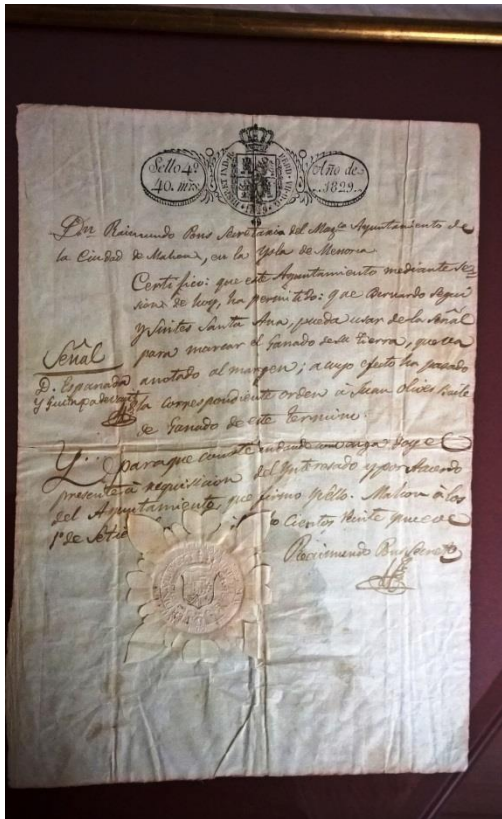 Sello 4º
40. mrs.
HISP. ET IND. R.
FERD. VII. D. G.
1829
Año de
1829.
Don Raimundo Pons Secretario del Magco. Ayuntamiento de
la Ciudad de Mahon, en la Ysla de Menorca
Certifico: que este Ayuntamiento mediante se-
sion de hoy, ha permitido: que Bernardo Seguí
y Sintes Santa Ana, pueda usar de la Señal
para marcar el Ganado de su tierra, que va
anotado al margen; a cuyo efecto ha pasado
la correspondiente orden à Juan Olives
de Ganado de este termino.
Señal
D. Espanada
y
Y para que conste donde convenga doy el
presente à requisicion del Interesado y por Acuerdo
del Ayuntamiento, que firmo y sello. Mahon à los
1º de Setie
cientos veinte y nueve
Raimundo Pons Secreto